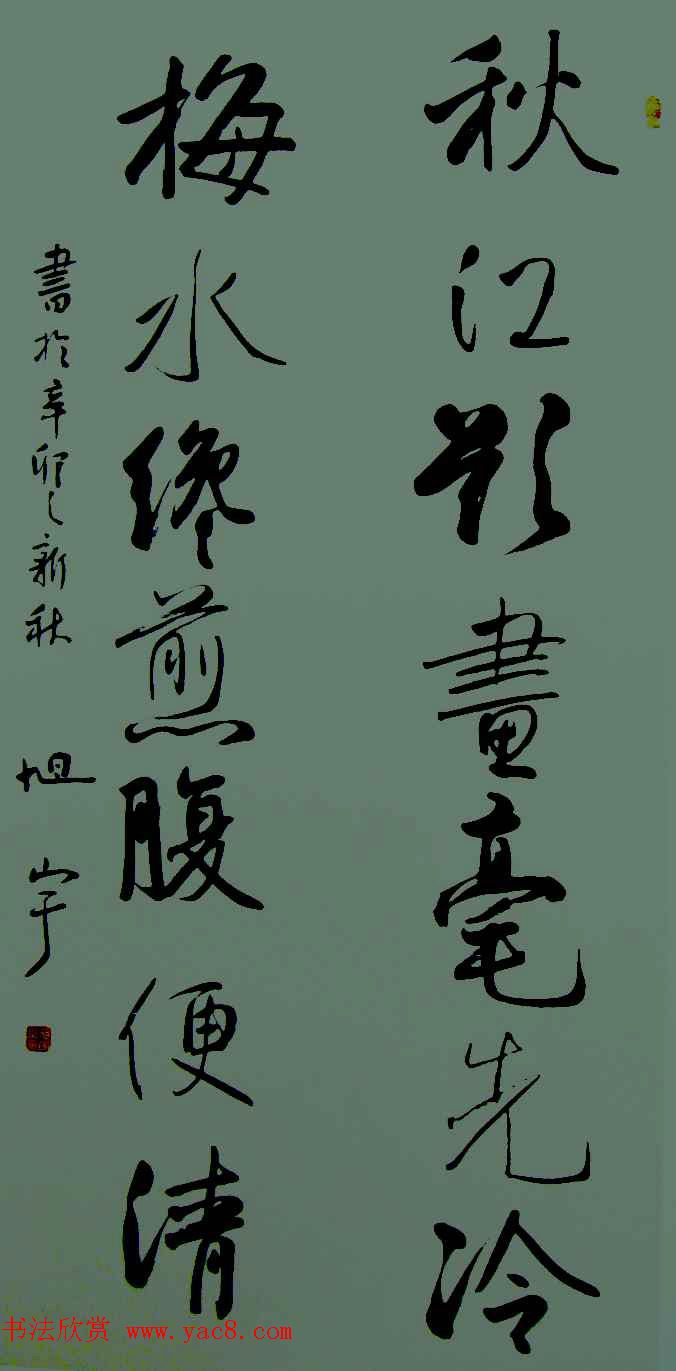 秋江欲畫毫先冷
梅水纔煎腹便清
書於辛卯之新秋
旭宇
书法欣赏 www.yac8.com